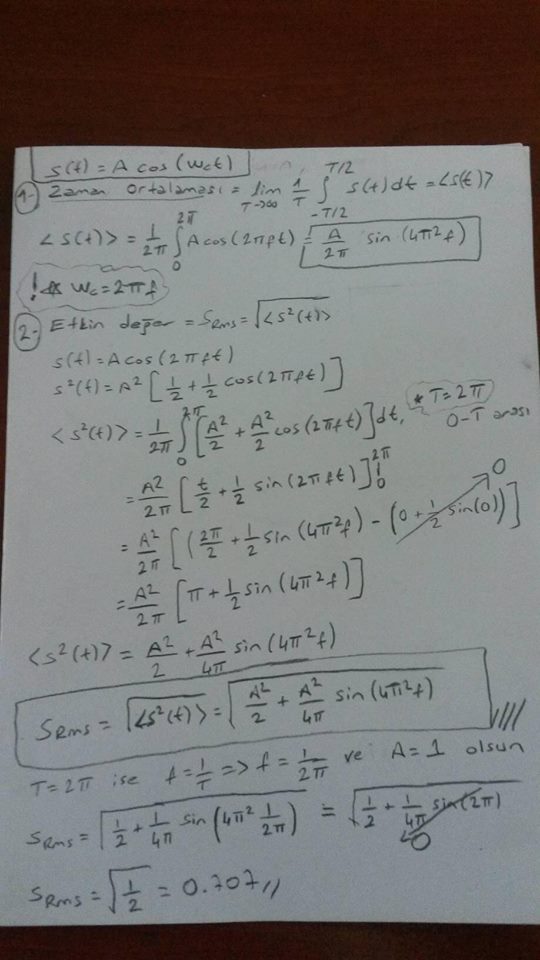 s(t) = A cos(w_c t)
1- Zaman Ortalaması = lim_{T→∞} 1/T ∫_{-T/2}^{T/2} s(t)dt = <s(t)>
<s(t)> = 1/2π ∫_0^{2π} A cos(2πft) = A/2π sin(4π²f)
! w_c = 2πf
2- Etkin değer = S_Rms = √<s²(t)>
s(t) = A cos(2πft)
s²(t) = A² [1/2 + 1/2 cos(2πft)]
<s²(t)> = 1/2π ∫_0^{2π} [A²/2 + A²/2 cos(2πft)] dt, * T = 2π
0-T arası
= A²/2π [t/2 + 1/2 sin(2πft)]_0^{2π}
= A²/2π [(2π/2 + 1/2 sin(4π²f) - (0 + 1/2 sin(0))] 0
= A²/2π [π + 1/2 sin(4π²f)]
<s²(t)> = A²/2 + A²/4π sin(4π²f)
S_Rms = √<s²(t)> = √(A²/2 + A²/4π sin(4π²f))
T = 2π ise f = 1/T => f = 1/2π ve A = 1 olsun
S_Rms = √(1/2 + 1/4π sin(4π² 1/2π)) = √(1/2 + 1/4π sin(2π)) 0
S_Rms = √(1/2) = 0.707 //